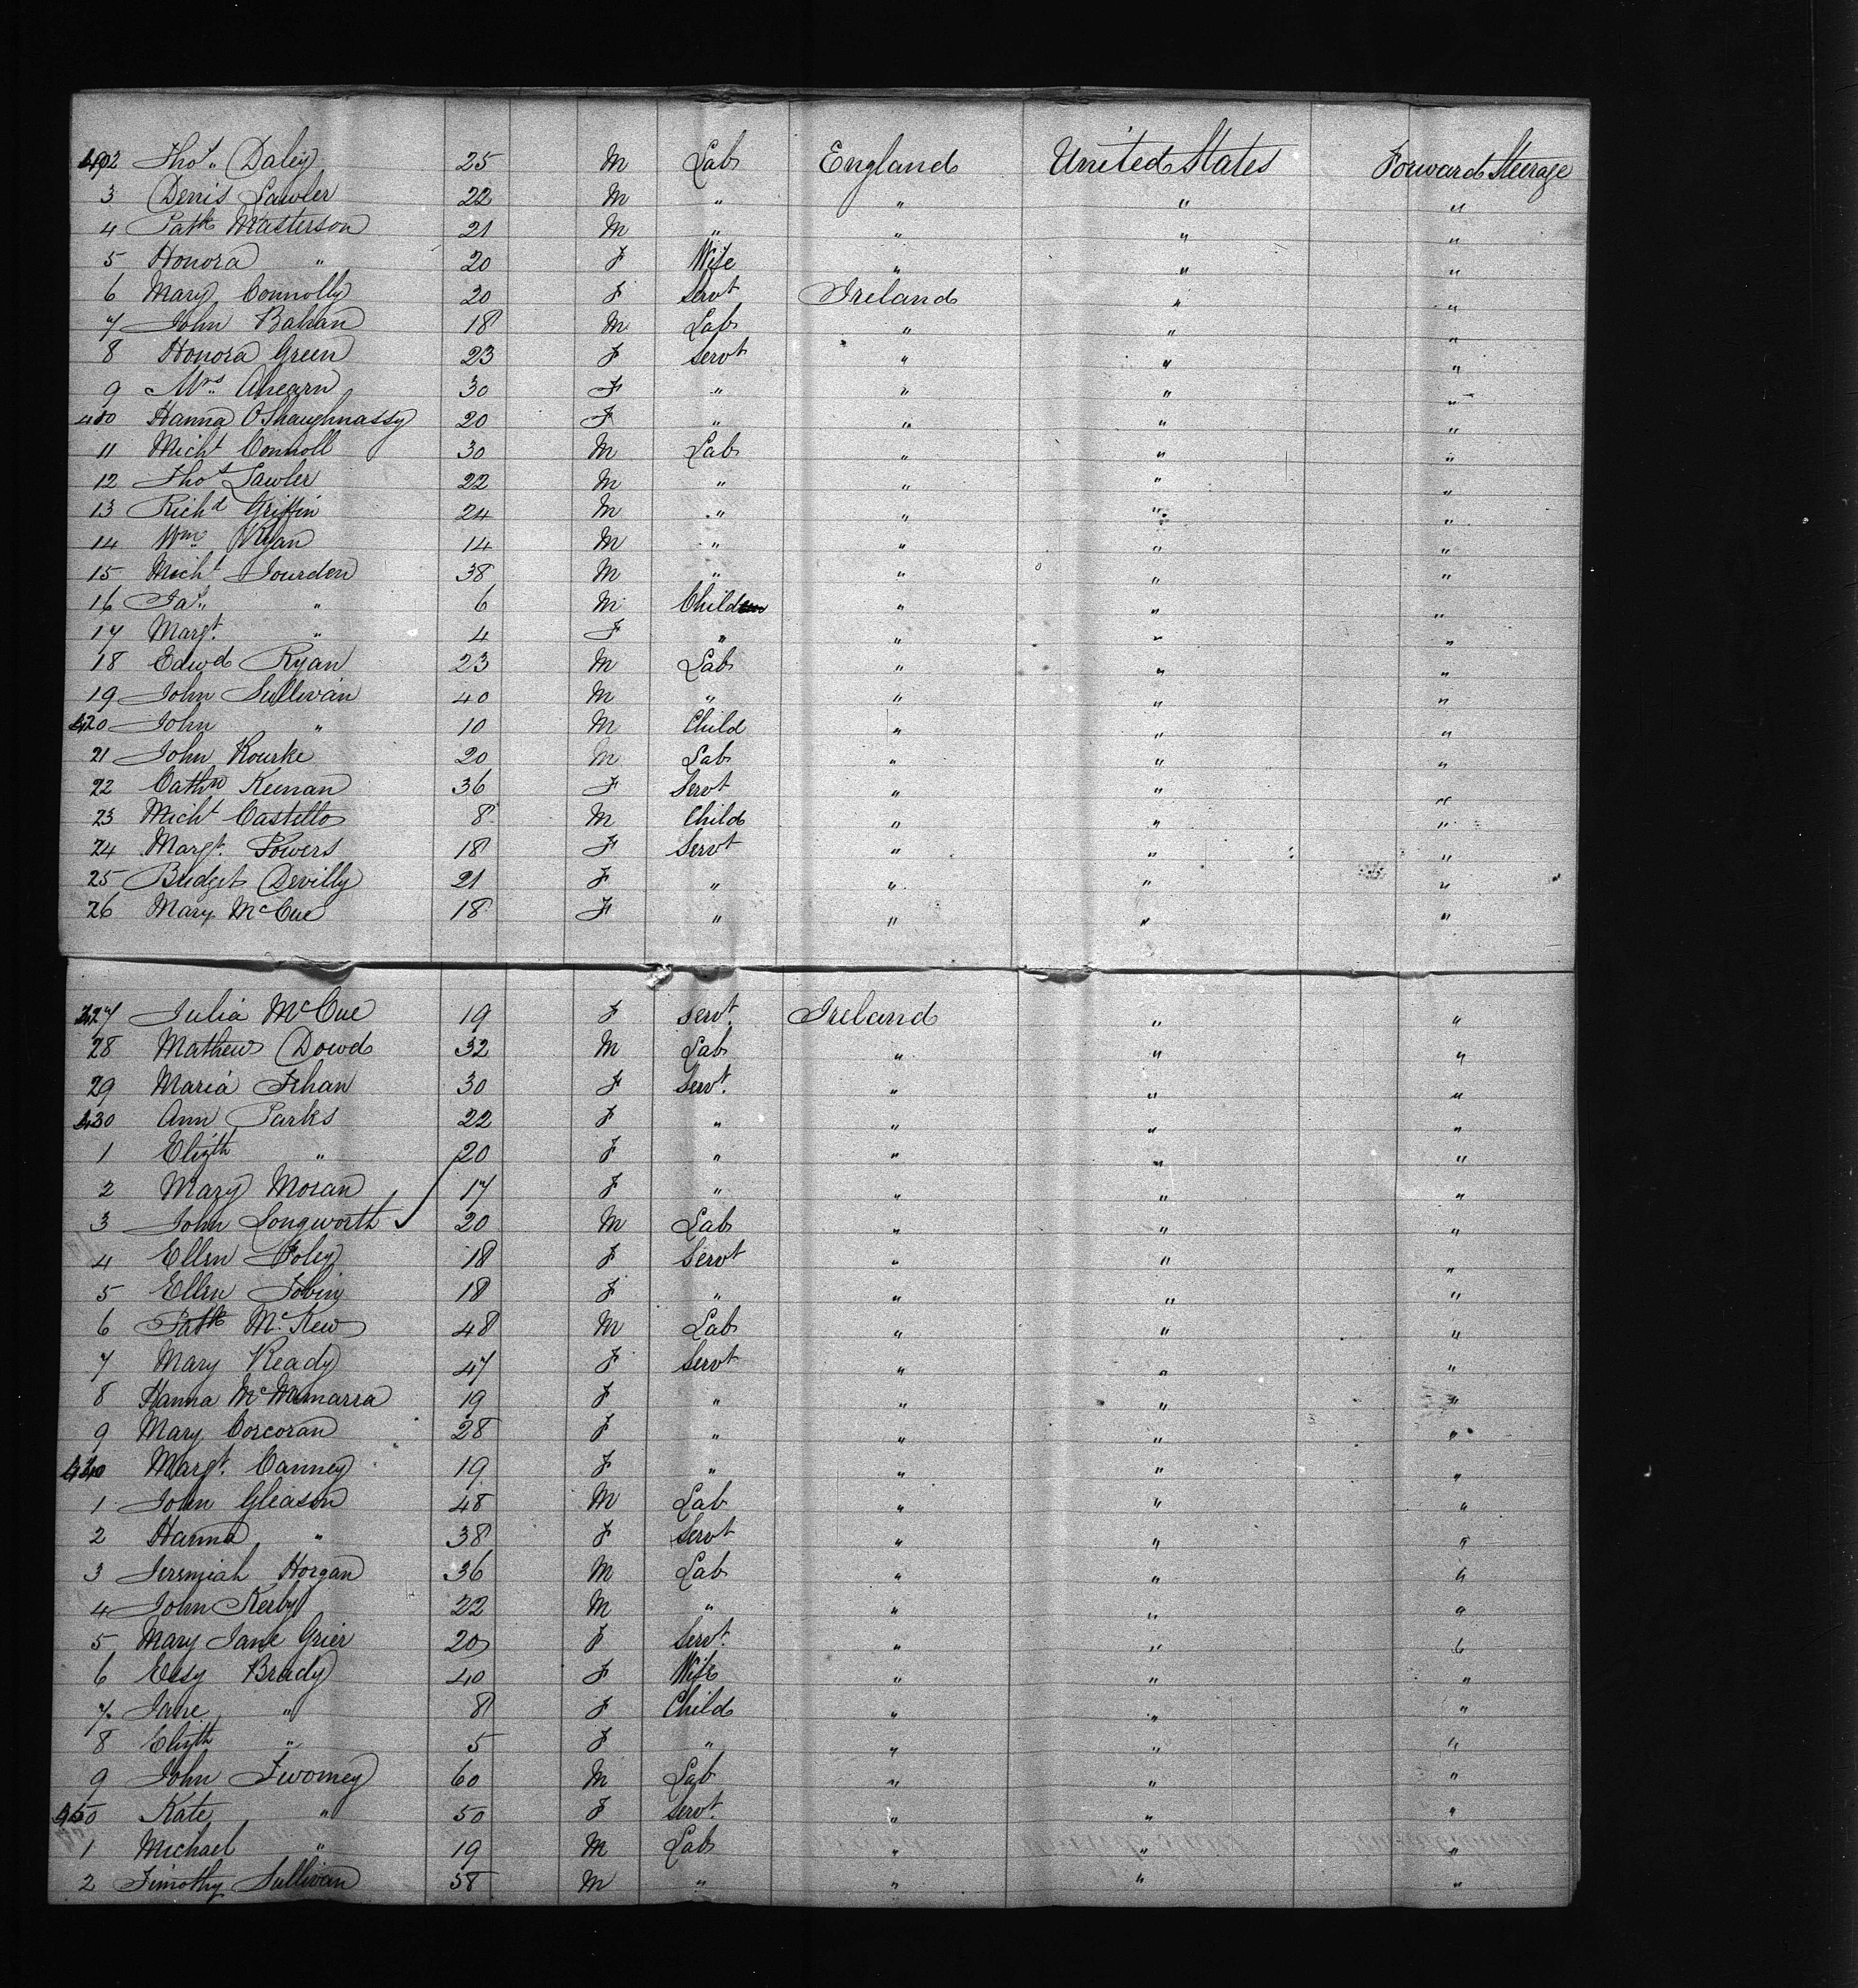 402 Thos. Daley 25 M Lab England United States Forward Steerage
3 Denis Lawler 22 M " " " "
4 Patk Masterson 21 M " " " "
5 Honora " 20 F Wife " " "
6 Mary Connolly 20 F Servt Ireland " "
7 John Bahan 18 M Lab " " "
8 Honora Green 23 F Servt " " "
9 Mrs. Ahearn 30 F " " " "
410 Hanna O'Shaughnassy 20 F " " " "
11 Michl Connoll 30 M Lab " " "
12 Thos Lawler 22 M " " " "
13 Richd Griffin 24 M " " " "
14 Wm. Ryan 14 M " " " "
15 Michl Jourden 38 M " " " "
16 Jas. " 6 M Child " " "
17 Margt. " 4 F " " " "
18 Edwd Ryan 23 M Lab " " "
19 John Sullivan 40 M " " " "
420 John " 10 M Child " " "
21 John Rourke 20 M Lab " " "
22 Cathn Keenan 36 F Servt " " "
23 Michl Castello 8 M Child " " "
24 Margt. Powers 18 F Servt " " "
25 Bridget Devilly 21 F " " " "
26 Mary McCue 18 F " " " "
427 Julia McCue 19 F Servt. Ireland " "
28 Mathew Dowd 32 M Lab " " "
29 Maria Fehan 30 F Servt. " " "
430 Ann Parks 22 F " " " "
1 Elizth " 20 F " " " "
2 Mary Moran 17 F " " " "
3 John Longworth 20 M Lab " " "
4 Ellen Foley 18 F Servt " " "
5 Ellen Tobin 18 F " " " "
6 Patk McKew 48 M Lab " " "
7 Mary Ready 47 F Servt " " "
8 Hanna McNamarra 19 F " " " "
9 Mary Corcoran 28 F " " " "
440 Margt. Canney 19 F " " " "
1 John Gleason 48 M Lab " " "
2 Hanna " 38 F Servt " " "
3 Jeremiah Horgan 36 M Lab " " "
4 John Kerby 22 M " " " "
5 Mary Jane Grier 20 F Servt. " " "
6 Essy Brady 40 F Wife " " "
7 Jane " 8 F Child " " "
8 Elizth " 5 F " " " "
9 John Twomey 60 M Lab " " "
450 Kate " 50 F Servt. " " "
1 Michael " 19 M Lab " " "
2 Timothy Sullivan 38 M " " " "